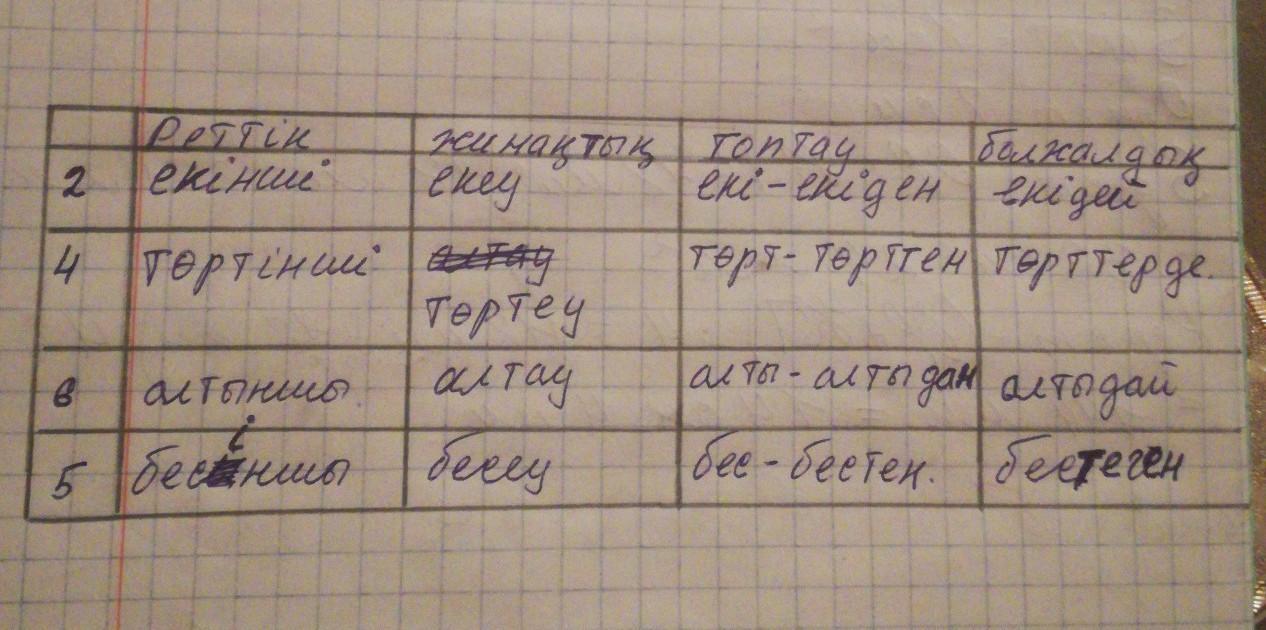 Реттік жинақтық топтау болжалдық
2 екінші екеу екі-екіден екідей
4 төртінші алтау төрт-төрттен төрттерде.
төртеу
6 алтыншы. алтау алты-алтыдан алтыдай
5 бесіншы бесеу бес-бестен. бестеген